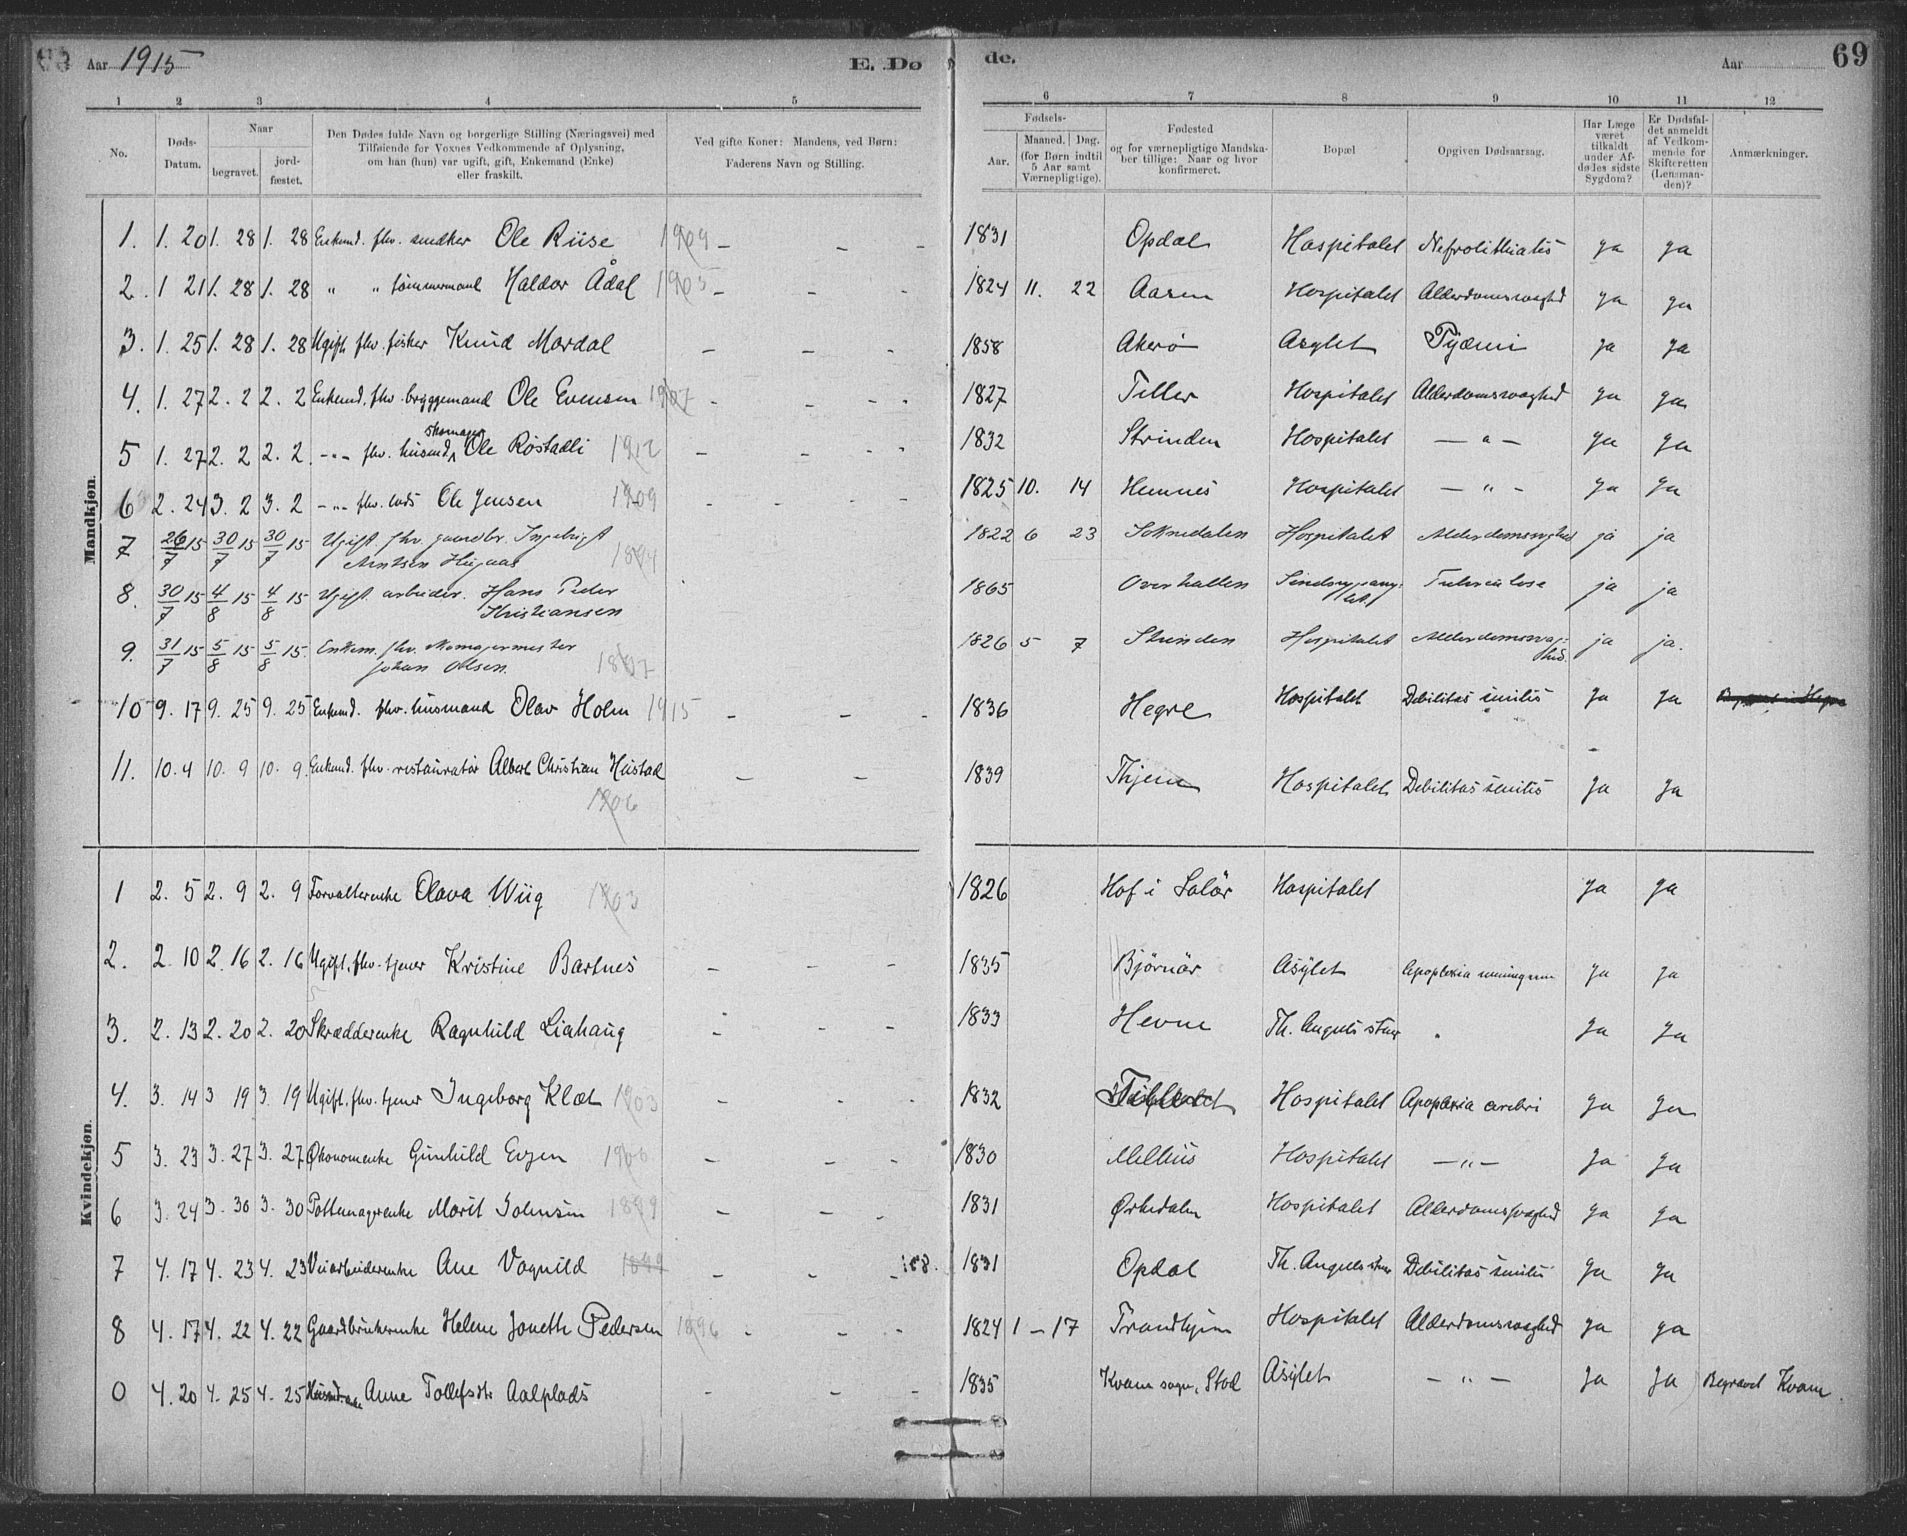 Aar 1915 E. Døde. Aar 69
1 2 3 4 5 6 7 8 9 10 11 12
No. Døds-Datum. Naar begravet. jordfæstet. Den Dødes fulde Navn og borgerlige Stilling (Næringsvei) med Tilføiende for Voxnes Vedkommende af Oplysning, om han (hun) var ugift, gift, Enkemand (Enke) eller fraskilt. Ved gifte Koner: Mandens, ved Børn: Faderens Navn og Stilling. Fødsels- Aar. Maaned. Dag. (for Børn indtil 5 Aar samt Værnepligtige). Fødested og for værnepligtige Mandskaber tillige: Naar og hvor konfirmeret. Bopæl. Opgiven Dødsaarsag. Har Læge været tilkaldt under Afdødes sidste Sygdom? Er Dødsfaldet anmeldt af Vedkommende for Skifteretten (Lensmanden)? Anmærkninger.
Mandkjøn.
1. 1. 20 1. 28 1. 28 Enkemd. fhv. snedker Ole Riise 1909 - - - 1831 Opdal Hospitalet Nefrolithiatis ja ja
2. 1 21 1. 28 1. 28 " " tømmermand Haldor Ådal 1905 - - - 1824 11. 22 Aasen Hospitalet Alderdomssvaghed ja ja
3. 1. 25 1. 28 1. 28 Ugift fhv. fisker Knud Mordal - - - 1858 Akerø Asylet Pyæmi ja ja
4. 1. 27 2. 2 2. 2 Enkemd. fhv. bryggemand Ole Evensen 1907 - - - - 1827 Tiller Hospitalet Alderdomssvaghed ja ja
5 1. 27 2. 2 2. 2. -"- fhv. husmd, skomager Ole Røstadli 1912 - - - - 1832 Strinden Hospitalet - " - ja ja
6 2. 24 3. 2 3. 2 -"- fhv. lods Ole Jensen 1909 - - 1825 10. 14 Hemnes Hospitalet - " - ja ja
7 26/7 15 30/7 15 30/7 15 Ugift fhv. gaardbr. Ingebrigt 1822 6 23 Soknedalen Hospitalet Alderdomssvaghed ja ja
Arntsen Haugaas 1894
8. 30/7 15 4/8 15 4/8 15 Ugift arbeider. Hans Peder 1865 Overhallen Sindssygeasylet. Tuberculose ja ja
Kristiansen
9. 31/7 15 5/8 15 5/8 15. Enkem. fhv. skomagermester 1826 5 7 Strinden Hospitalet Alderdomssvaghed. ja ja.
Johan Olsen.
10 9. 17 9. 25 9. 25 Enkemd. fhv. husmand Olav Holm 1915 - - - 1836 Hegre Hospitalet Debilitas senilis ja ja Begravet i Hegre
11. 10. 4 10. 9 10. 9. Enkemd. fhv. restauratør Albert Christian Hustad - - 1839 Hospitalet Debilitas senilis ja ja
1906
Kvindekjøn.
1 2. 5 2. 9 2. 9 Forvalterenke Olava Wiig 1903 1826 Hof i Solør Hospitalet ja ja
2. 2. 10 2. 16 2. 16 Ugift, fhv. tjener Kristine Bartnes - - - 1835 Bjørnør Asylet Apoplexia ja ja
3. 2. 13 2. 20 2. 20 Skrædderenke Ragnhild Liahaug - - - 1833 Hevne Th. Angells stuer " ja ja
4. 3. 14 3 19 3. 19 Ugift, fhv. tjener Ingeborg Klæt 1903 - - - 1832 Hospitalet Apoplexia cerebri ja ja
5 3. 23 3. 27 3. 27 Økonomenke Gunhild Evjen 1906 - - - 1830 Melhus Hospitalet - " - ja ja
6 3. 24 3. 30 3. 30 Pottemagerenke Marit Johnsen 1899 - - - 1831 Ørkedalen Hospitalet Alderdomssvaghed ja ja
7 4. 17 4. 23 4. 23 Veiarbeiderenke Ane Vognild 1899 - - - 1831 Opdal Th. Angells stuer Debilitas senilis ja ja
8 4. 17 4. 22 4. 22 Gaardbrukerenke Helene Jonette Pedersen 1896 - - - 1824 1 - 17 Trondhjem Hospitalet Alderdomssvaghed ja ja
0 4. 20 4. 25 4. 25 Husmd.enke Anne Tollefsdtr Aalplads - - - 1835 Kvam sogn, Stod Asylet - " - ja ja Begravet Kvam.